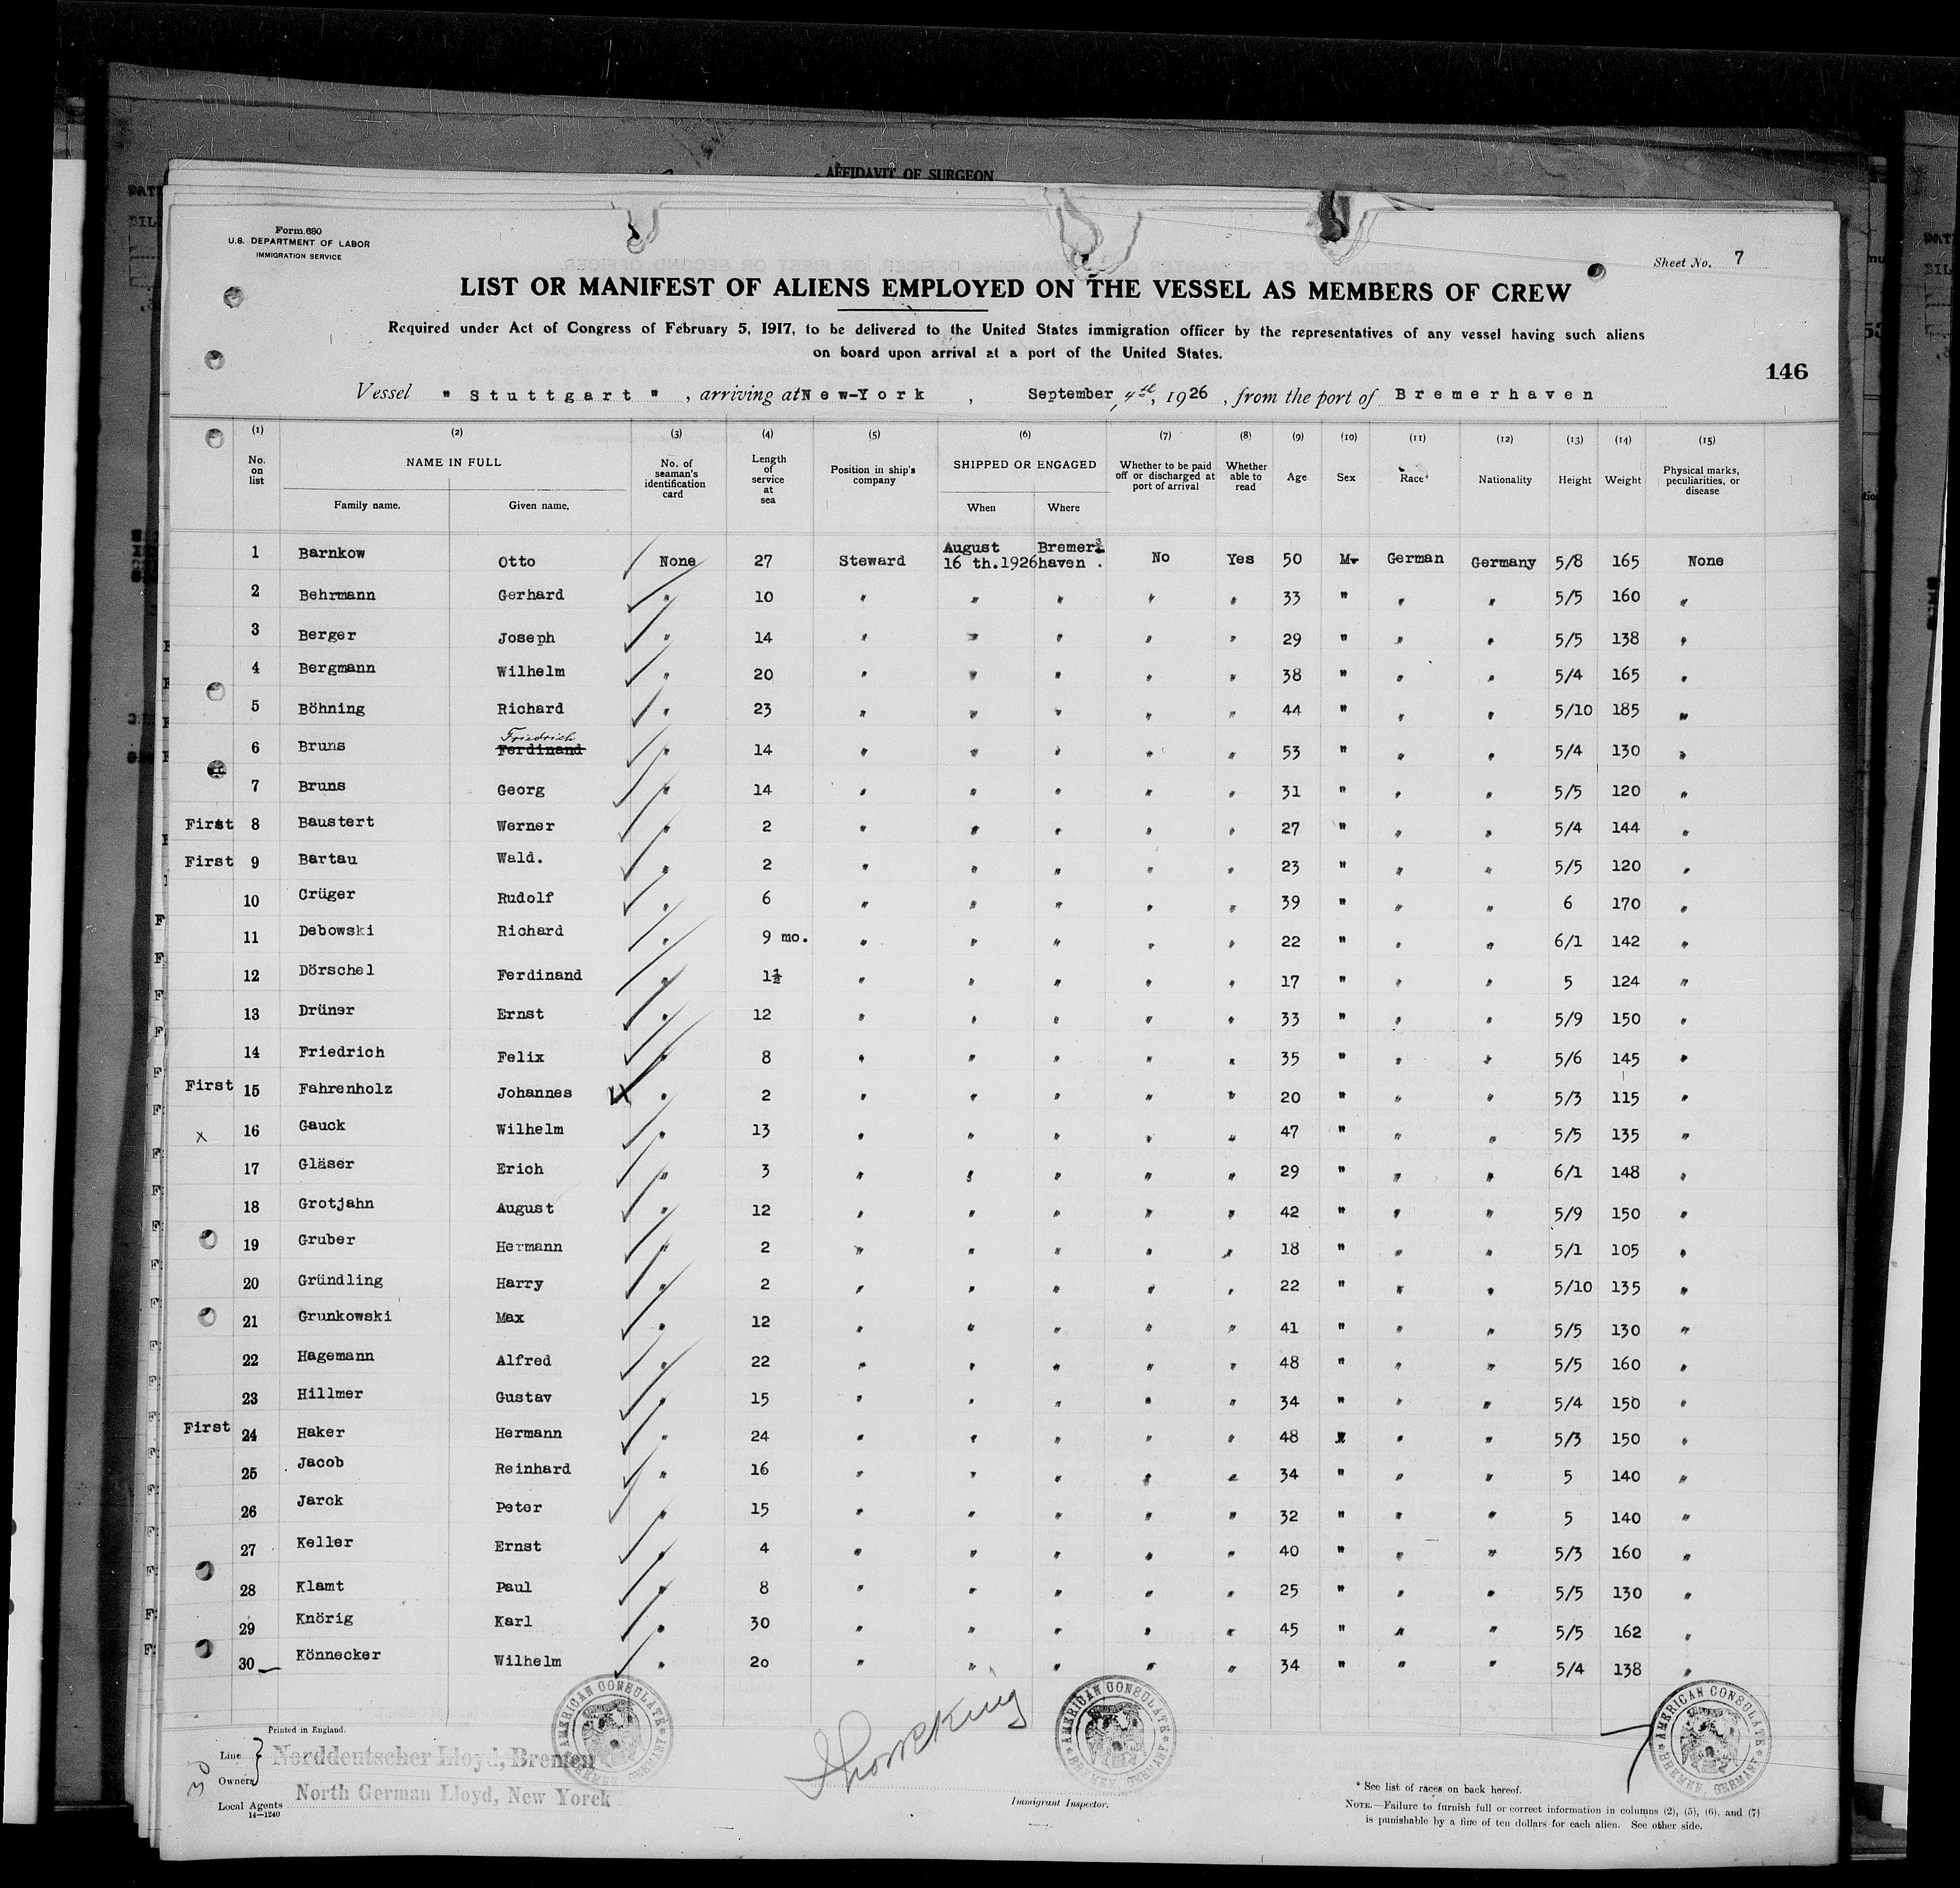 AFFIDAVIT OF SURGEON
Form 680
U.S. DEPARTMENT OF LABOR
IMMIGRATION SERVICE
Sheet No. 7
LIST OR MANIFEST OF ALIENS EMPLOYED ON THE VESSEL AS MEMBERS OF CREW
Required under Act of Congress of February 5, 1917, to be delivered to the United States immigration officer by the representatives of any vessel having such aliens
on board upon arrival at a port of the United States.
146
Vessel " Stuttgart ", arriving at New-York, September 4th, 1926, from the port of Bremerhaven
(1) (2) (3) (4) (5) (6) (7) (8) (9) (10) (11) (12) (13) (14) (15)
No. on list NAME IN FULL Family name. Given name. No. of seaman's identification card Length of service at sea Position in ship's company SHIPPED OR ENGAGED When Where Whether to be paid off or discharged at port of arrival Whether able to read Age Sex Race* Nationality Height Weight Physical marks, peculiarities, or disease
1 Barnkow Otto None 27 Steward August 16 th.1926 Bremerhaven . No Yes 50 M. German Germany 5/8 165 None
2 Behrmann Gerhard " 10 " " " " " 33 " " " 5/5 160 "
3 Berger Joseph " 14 " " " " " 29 " " " 5/5 138 "
4 Bergmann Wilhelm " 20 " " " " " 38 " " " 5/4 165 "
5 Böhning Richard " 23 " " " " " 44 " " " 5/10 185 "
6 Bruns Ferdinand Friedrich " 14 " " " " " 53 " " " 5/4 130 "
7 Bruns Georg " 14 " " " " " 31 " " " 5/5 120 "
First 8 Baustert Werner " 2 " " " " " 27 " " " 5/4 144 "
First 9 Bartau Wald. " 2 " " " " " 23 " " " 5/5 120 "
10 Crüger Rudolf " 6 " " " " " 39 " " " 6 170 "
11 Debowski Richard " 9 mo. " " " " " 22 " " " 6/1 142 "
12 Dörschel Ferdinand " 1½ " " " " " 17 " " " 5 124 "
13 Drüner Ernst " 12 " " " " " 33 " " " 5/9 150 "
14 Friedrich Felix " 8 " " " " " 35 " " " 5/6 145 "
First 15 Fahrenholz Johannes x " 2 " " " " " 20 " " " 5/3 115 "
x 16 Gauck Wilhelm " 13 " " " " " 47 " " " 5/5 135 "
17 Gläser Erich " 3 " " " " " 29 " " " 6/1 148 "
18 Grotjahn August " 12 " " " " " 42 " " " 5/9 150 "
19 Gruber Hermann " 2 " " " " " 18 " " " 5/1 105 "
20 Gründling Harry " 2 " " " " " 22 " " " 5/10 135 "
21 Grunkowski Max " 12 " " " " " 41 " " " 5/5 130 "
22 Hagemann Alfred " 22 " " " " " 48 " " " 5/5 160 "
23 Hillmer Gustav " 15 " " " " " 34 " " " 5/4 150 "
First 24 Haker Hermann " 24 " " " " " 48 " " " 5/3 150 "
25 Jacob Reinhard " 16 " " " " " 34 " " " 5 140 "
26 Jarck Peter " 15 " " " " " 32 " " " 5 140 "
27 Keller Ernst " 4 " " " " " 40 " " " 5/3 160 "
28 Klamt Paul " 8 " " " " " 25 " " " 5/5 130 "
29 Knörig Karl " 30 " " " " " 45 " " " 5/5 162 "
30 Könnecker Wilhelm " 20 " " " " " 34 " " " 5/4 138 "
AMERICAN CONSULATE BREMEN, GERMANY
AMERICAN CONSULATE BREMEN, GERMANY
AMERICAN CONSULATE BREMEN, GERMANY
Printed in England.
30
Line Owners } Norddeutscher Lloyd, Bremen
Local Agents North German Lloyd, New Yorck
14—1240
Immigrant Inspector.
7
* See list of races on back hereof.
NOTE.—Failure to furnish full or correct information in columns (2), (5), (6), and (7)
is punishable by a fine of ten dollars for each alien. See other side.